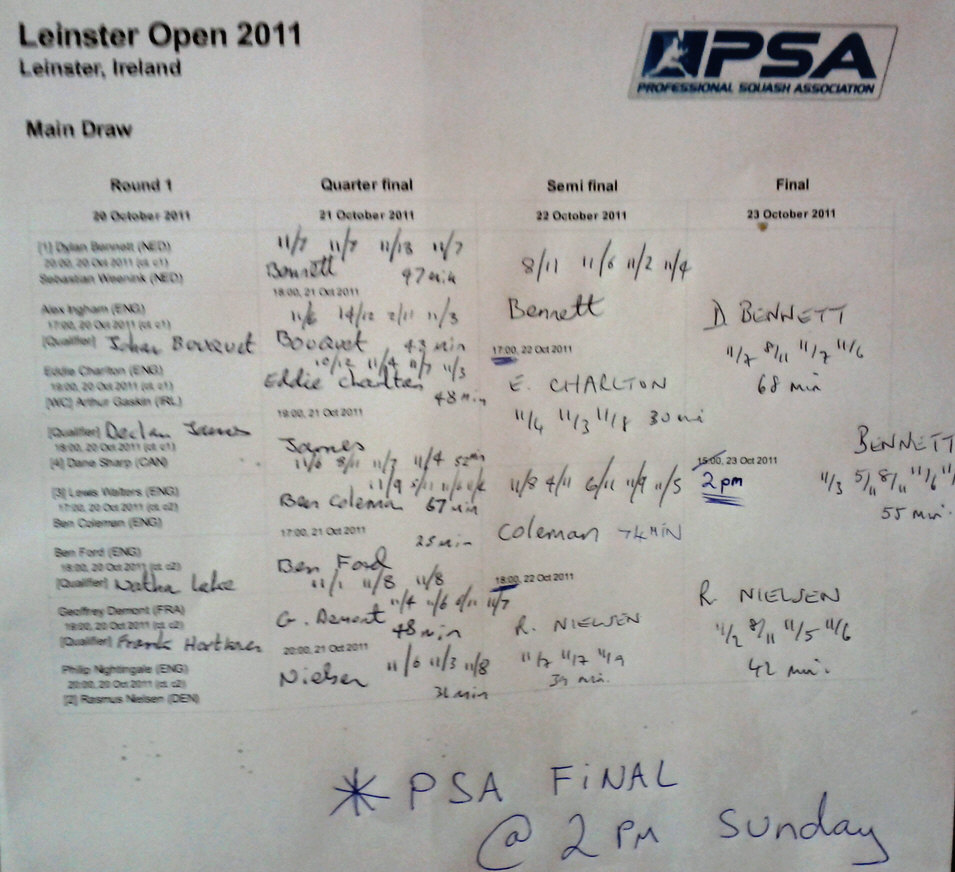 Leinster Open 2011
Leinster, Ireland
PSA
PROFESSIONAL SQUASH ASSOCIATION
Main Draw
Round 1
Quarter final
Semi final
Final
20 October 2011
21 October 2011
22 October 2011
23 October 2011
[1] Dylan Bennett (NED)
20:00, 20 Oct 2011 (ct. c1)
Sebastian Weenink (NED)
11/7 11/7 11/13 11/7
Bennett 47 min
18:00, 21 Oct 2011
Alex Ingham (ENG)
17:00, 20 Oct 2011 (ct. c1)
[Qualifier] Johan Bouquet
11/6 14/12 2/11 11/3
Bouquet 43 min
8/11 11/6 11/2 11/4
Bennett
17:00, 22 Oct 2011
Eddie Charlton (ENG)
18:00, 20 Oct 2011 (ct. c1)
[WC] Arthur Gaskin (IRL)
10/12 11/4 11/7 11/3
Eddie Charlton
48 min
19:00, 21 Oct 2011
[Qualifier] Declan James
18:00, 20 Oct 2011 (ct. c1)
[4] Dane Sharp (CAN)
James
11/6 8/11 11/7 11/4 52 min
E. CHARLTON
11/4 11/3 11/8 30 mi
D. BENNETT
11/7 8/11 11/7 11/6
68 min
15:00, 23 Oct 2011
2 pm
BENNETT
11/3 5/11 8/11 11/6
55 min.
[3] Lewis Walters (ENG)
17:00, 20 Oct 2011 (ct. c2)
Ben Coleman (ENG)
11/9 5/11
Ben Coleman 67 min
17:00, 21 Oct 2011
Ben Ford (ENG)
18:00, 20 Oct 2011 (ct. c2)
[Qualifier] Nathan Lake
25 min
Ben Ford
11/1 11/8 11/8
11/8 4/11 6/11 11/9 11/5
Coleman 74 MIN
18:00, 22 Oct 2011
Geoffrey Demont (FRA)
19:00, 20 Oct 2011 (ct. c2)
[Qualifier] Frank
11/4 11/6 6/11 11/7
G. Demont
48 min
20:00, 21 Oct 2011
Philip Nightingale (ENG)
20:00, 20 Oct 2011 (ct. c2)
[2] Rasmus Nielsen (DEN)
11/6 11/3 11/8
Nielsen
31 min
R. NIELSEN
11/7 11/7 11/9
34 min.
R. NIELSEN
11/2 8/11 11/5 11/6
42 min.
* PSA FINAL
@ 2 PM Sunday